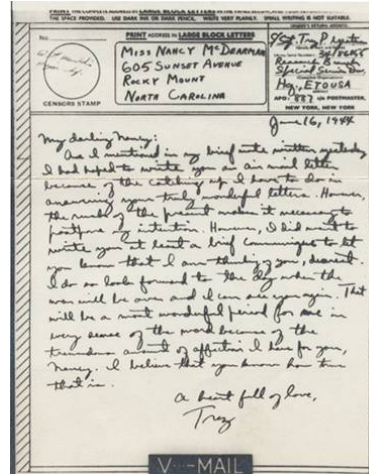 PRINT THE COMPLETE ADDRESS IN LARGE BLOCK LETTERS
THE SPACE PROVIDED. USE DARK INK OR DARK PENCIL. WRITE VERY PLAINLY. SMALL WRITING IS NOT SUITABLE.
No.
PRINT ADDRESS IN LARGE BLOCK LETTERS
MISS NANCY MCDEARMAN
605 SUNSET AVENUE
ROCKY MOUNT
NORTH CAROLINA
CENSORS STAMP
Research Branch
Special Service Div.
Hq., ETOUSA
APO: 887 c/o POSTMASTER,
NEW YORK, NEW YORK
June 16, 1944
My darling Nancy:
As I mentioned in my brief note written yesterday
I had hoped to write you an air mail letter
because of the catching up I have to do in
answering your truly wonderful letters. However,
the rush of the present makes it necessary to
postpone my intention. However, I did want to
write you at least a brief communique to let
you know that I am thinking of you, dearest.
I do so look forward to the day when the
war will be over and I can see you again. That
will be a most wonderful period for me in
every sense of the word because of the
tremendous amount of affection I have for you,
Nancy. I believe that you know how true
that is.
A heart full of love,
Troy
V···-MAIL